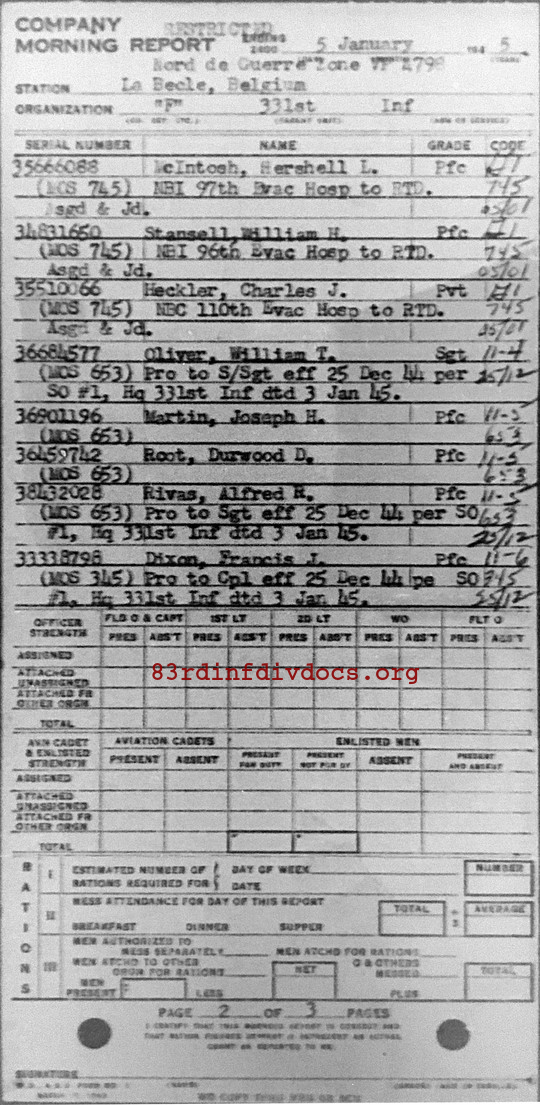 COMPANY RESTRICTED
MORNING REPORT ENDING 2400 5 January 194 5
Nord de Guerre Zone
STATION La Becle, Belgium
ORGANIZATION "F" 331st Inf
SERIAL NUMBER NAME GRADE CODE
35666088 McIntosh, Hershell L. Pfc
(MOS 745) NBI 97th Evac Hosp to RTD. 745
Asgd & Jd. 05/01
34831650 Stansell,William H. Pfc
(MOS 745) NBI 96th Evac Hosp to RTD. 745
Asgd & Jd. 05/01
35510066 Heckler, Charles J. Pvt
(MOS 745) NBC 110th Evac Hosp to RTD. 745
Asgd & Jd.
36684577 Oliver, William T. Sgt 11-4
(MOS 653) Pro to S/Sgt eff 25 Dec 44 per 25/12
SO #1, Hq 331st Inf dtd 3 Jan 45.
36901196 Martin, Joseph H. Pfc 11-5
(MOS 653) 653
36459742 Root, Durwood D. Pfc 11-5
(MOS 653) 653
38432028 Rivas, Alfred R. Pfc 11-5
(MOS 653) Pro to Sgt eff 25 Dec 44 per SO 653
#1, Hq 331st Inf dtd 3 Jan 45. 25/12
33338798 Dixon, Francis J. Pfc 11-6
(MOS 345) Pro to Cpl eff 25 Dec 44 pe SO
#1, Hq 331st Inf dtd 3 Jan 45. 25/12
OFFICER STRENGTH FLD O & CAPT 1ST LT 2D LT WO FLT O
PRES ABS'T PRES ABS'T PRES ABS'T PRES ABS'T PRES ABS'T
ASSIGNED
ATTACHED UNASSIGNED
ATTACHED FR OTHER ORGN
TOTAL
83rdinfdivdocs.org
AVN CADET & ENLISTED STRENGTH AVIATION CADETS ENLISTED MEN
PRESENT ABSENT PRESENT FOR DUTY PRESENT NOT FOR DY ABSENT PRESENT AND ABSENT
ASSIGNED
ATTACHED UNASSIGNED
ATTACHED FR OTHER ORGN
TOTAL
RATIONS
I ESTIMATED NUMBER OF RATIONS REQUIRED FOR DAY OF WEEK DATE NUMBER
II MESS ATTENDANCE FOR DAY OF THIS REPORT TOTAL ÷ 3 AVERAGE
BREAKFAST DINNER SUPPER
III MEN AUTHORIZED TO MESS SEPARATELY MEN ATCHD FOR RATIONS
MEN ATCHD TO OTHER ORGN FOR RATIONS NET O & OTHERS MESSED TOTAL
MEN PRESENT F LESS PLUS
PAGE 2 OF 3 PAGES
I CERTIFY THAT THIS MORNING REPORT IS CORRECT AND
SIGNATURE